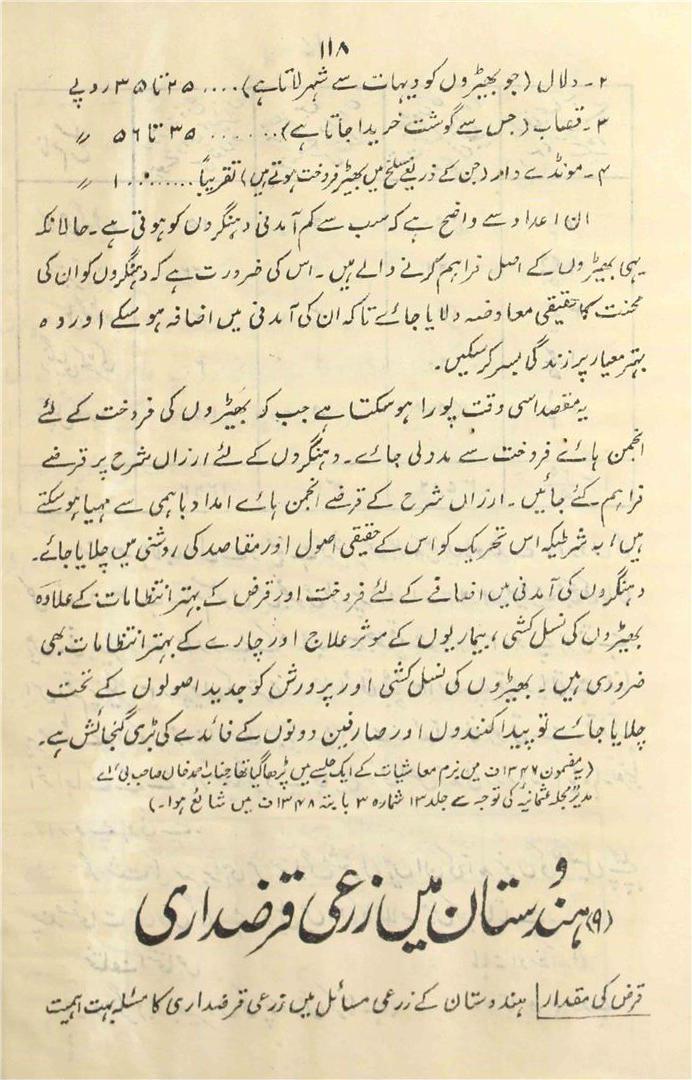 ۱۱۸
۲۔ دلال (جو بھیڑوں کو دیہات سے شہر لاتا ہے) .... ۲۵ تا ۳۵ روپے
۳۔ قصاب (جس سے گوشت خریدا جاتا ہے) ....... ۳۵ تا ۵۶ 〃
۴۔ مونڈے دار (جن کے ذریعے مسلخ میں بھیڑ فروخت ہوتے ہیں) تقریباً ...... ۱۰۰ 〃
ان اعداد سے واضح ہے کہ سب سے کم آمدنی دہنگروں کو ہوتی ہے۔ حالانکہ
یہی بھیڑوں کے اصل فراہم کرنے والے ہیں۔ اس کی ضرورت ہے کہ دہنگروں کو ان کی
محنت کا حقیقی معاوضہ دلایا جائے تاکہ ان کی آمدنی میں اضافہ ہو سکے اور وہ
بہتر معیار پر زندگی بسر کر سکیں۔
یہ مقصد اسی وقت پورا ہو سکتا ہے جب کہ بھیڑوں کی فروخت کے لئے
انجمن ہائے فروخت سے مدد لی جائے۔ دہنگروں کے لئے ارزاں شرح پر قرضے
فراہم کئے جائیں۔ ارزاں شرح کے قرضے انجمن ہائے امداد باہمی سے مہیا ہو سکتے
ہیں، بہ شرطیکہ اس تحریک کو اس کے حقیقی اصول اور مقاصد کی روشنی میں چلایا جائے۔
دہنگروں کی آمدنی میں اضافے کے لئے فروخت اور قرض کے بہتر انتظامات کے علاوہ
بھیڑوں کی نسل کشی، بیماریوں کے موثر علاج اور چارے کے بہتر انتظامات بھی
ضروری ہیں۔ بھیڑوں کی نسل کشی اور پرورش کو جدید اصولوں کے تحت
چلایا جائے تو پیدا کنندوں اور صارفین دونوں کے فائدے کی بڑی گنجائش ہے۔
(یہ مضمون ۱۳۴۶ف میں بزم معاشیات کے ایک جلسے میں پڑھا گیا تھا جناب احمد خاں صاحب بی اے
مدیر مجلہ عثمانیہ کی توجہ سے جلد ۱۳ شمارہ ۳ بابتہ ۱۳۴۸ف میں شائع ہوا۔)
(۹) ہندوستان میں زرعی قرضداری
قرض کی مقدار | ہندوستان کے زرعی مسائل میں زرعی قرضداری کا مسئلہ بہت اہمیت